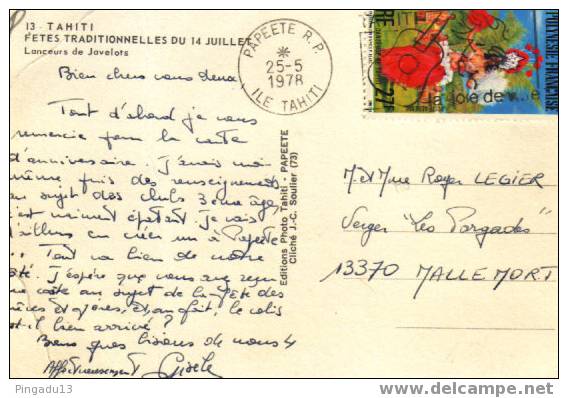 13 - TAHITI
FETES TRADITIONNELLES DU 14 JUILLET
Lanceurs de Javelots
Bien chers vous deux,
Tout d'abord je vous
remercie pour la carte
d'anniversaire. J'avais moi
même pris des renseignements
au sujet des clubs 3ème âge,
c'est vraiment épatant je vais
d'ailleurs en créer un à Papeete
... Tout va bien de notre
côté. J'espère que vous avez reçu
carte au sujet de la fête des
mères et pères, en fait, le colis
est-il bien arrivé ?
Bons gros bisous de nous 4
Affectueusement Gisèle
PAPEETE R.P.
25-5
1978
ILE TAHITI
POLYNESIE FRANCAISE
27F
la joie de vivre
Editions Photo Tahiti - PAPEETE
Cliché J.-C. Soulier (73)
M. et Mme Roger LEGIER
Verger "Les Pargades"
13370 MALLEMORT
Pingadu13
delcampe.net